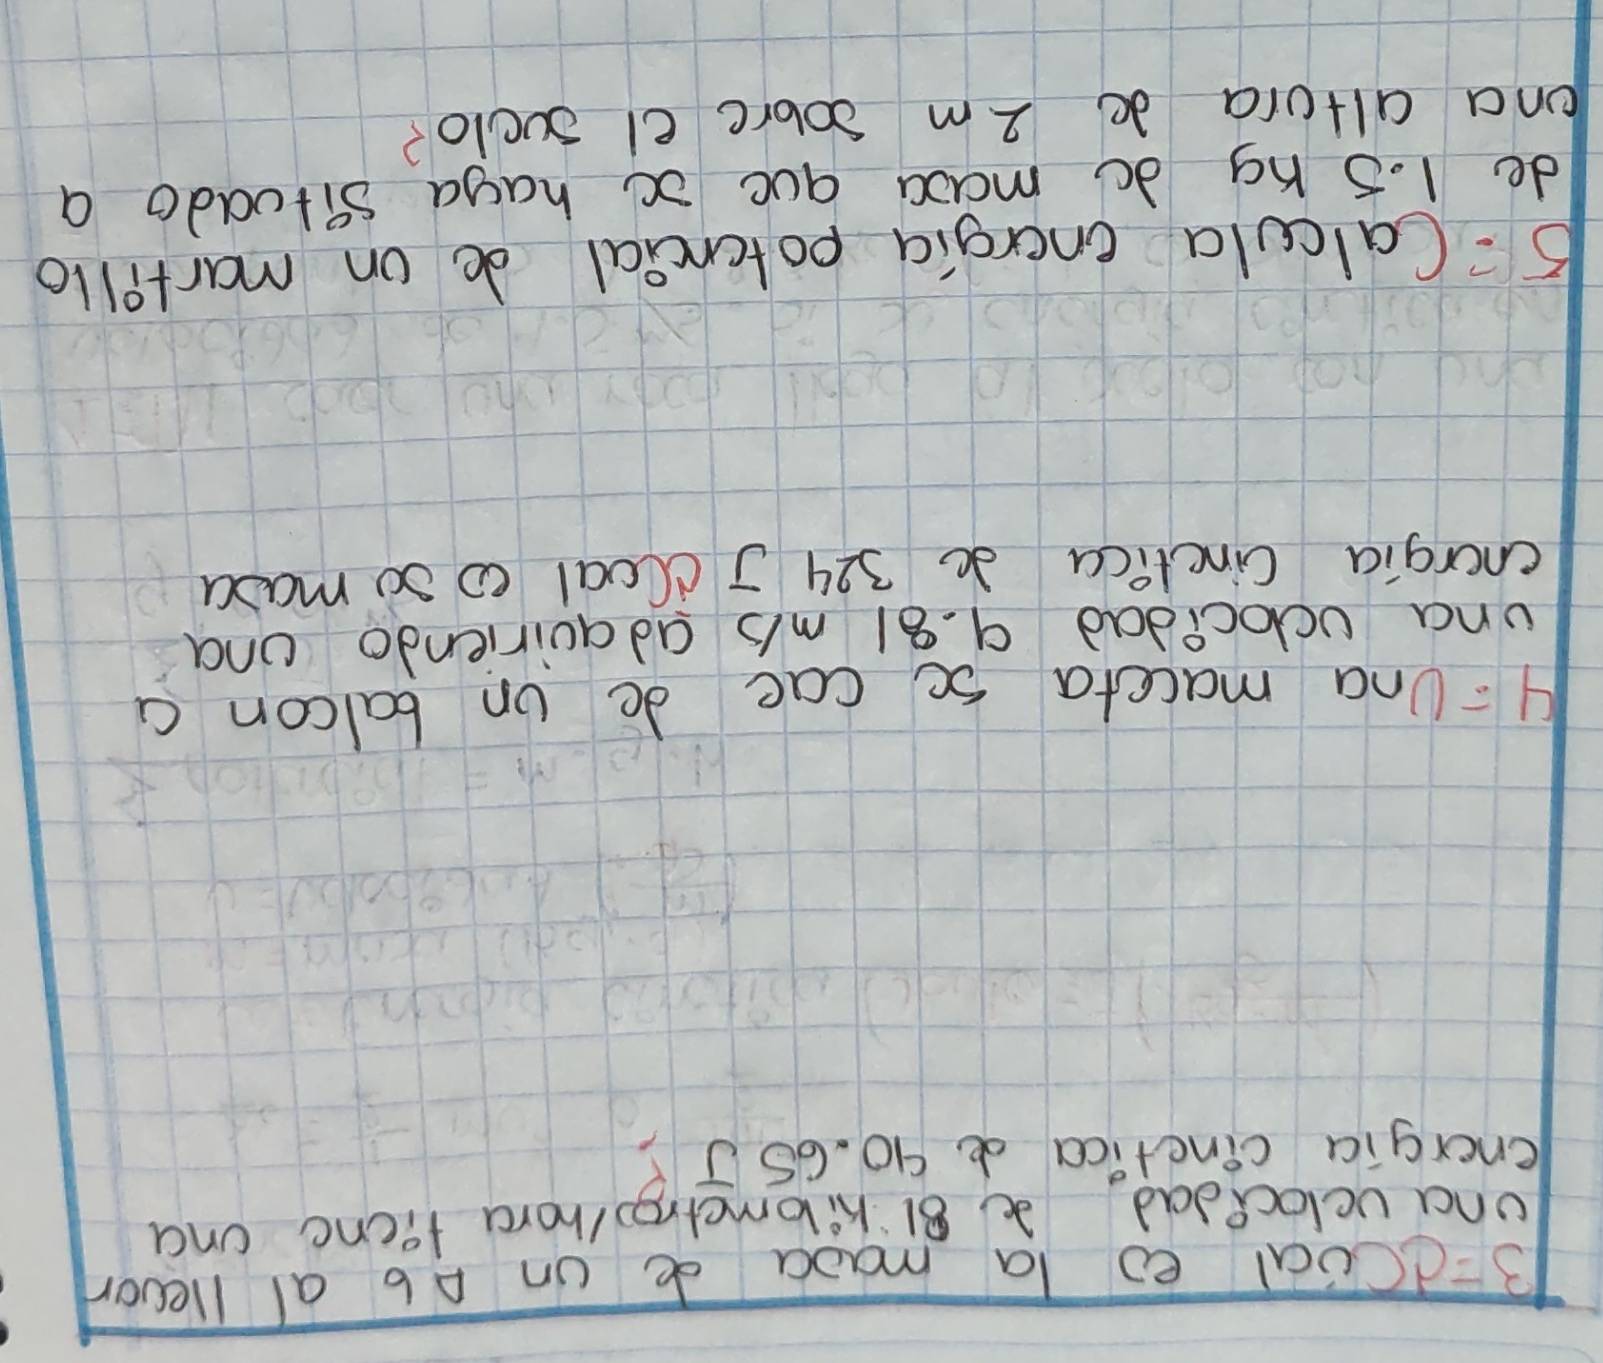 3=¿Cual es la masa de un Δ6 al llevar
una velocidad de 81 Kilometros/hora tiene una
energía cinetica de 90.65 J?
4=Una maceta se cae de un balcon a
una velocidad 9.81 m/s adquiriendo una
energía cinetica de 324 J ¿Cual es su masa
5=Calcula energía potencial de un martillo
de 1.5 kg de masa que se haya situado a
una altura de 2m sobre el suelo?